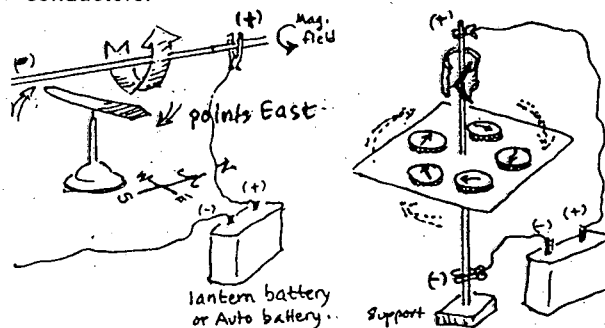 conductors.
(+)
Mag.
field
M
(-)
points East.
N
S
E
(+)
(-)
lantern battery
or Auto battery..
(+)
(-)
(+)
(-)
Support